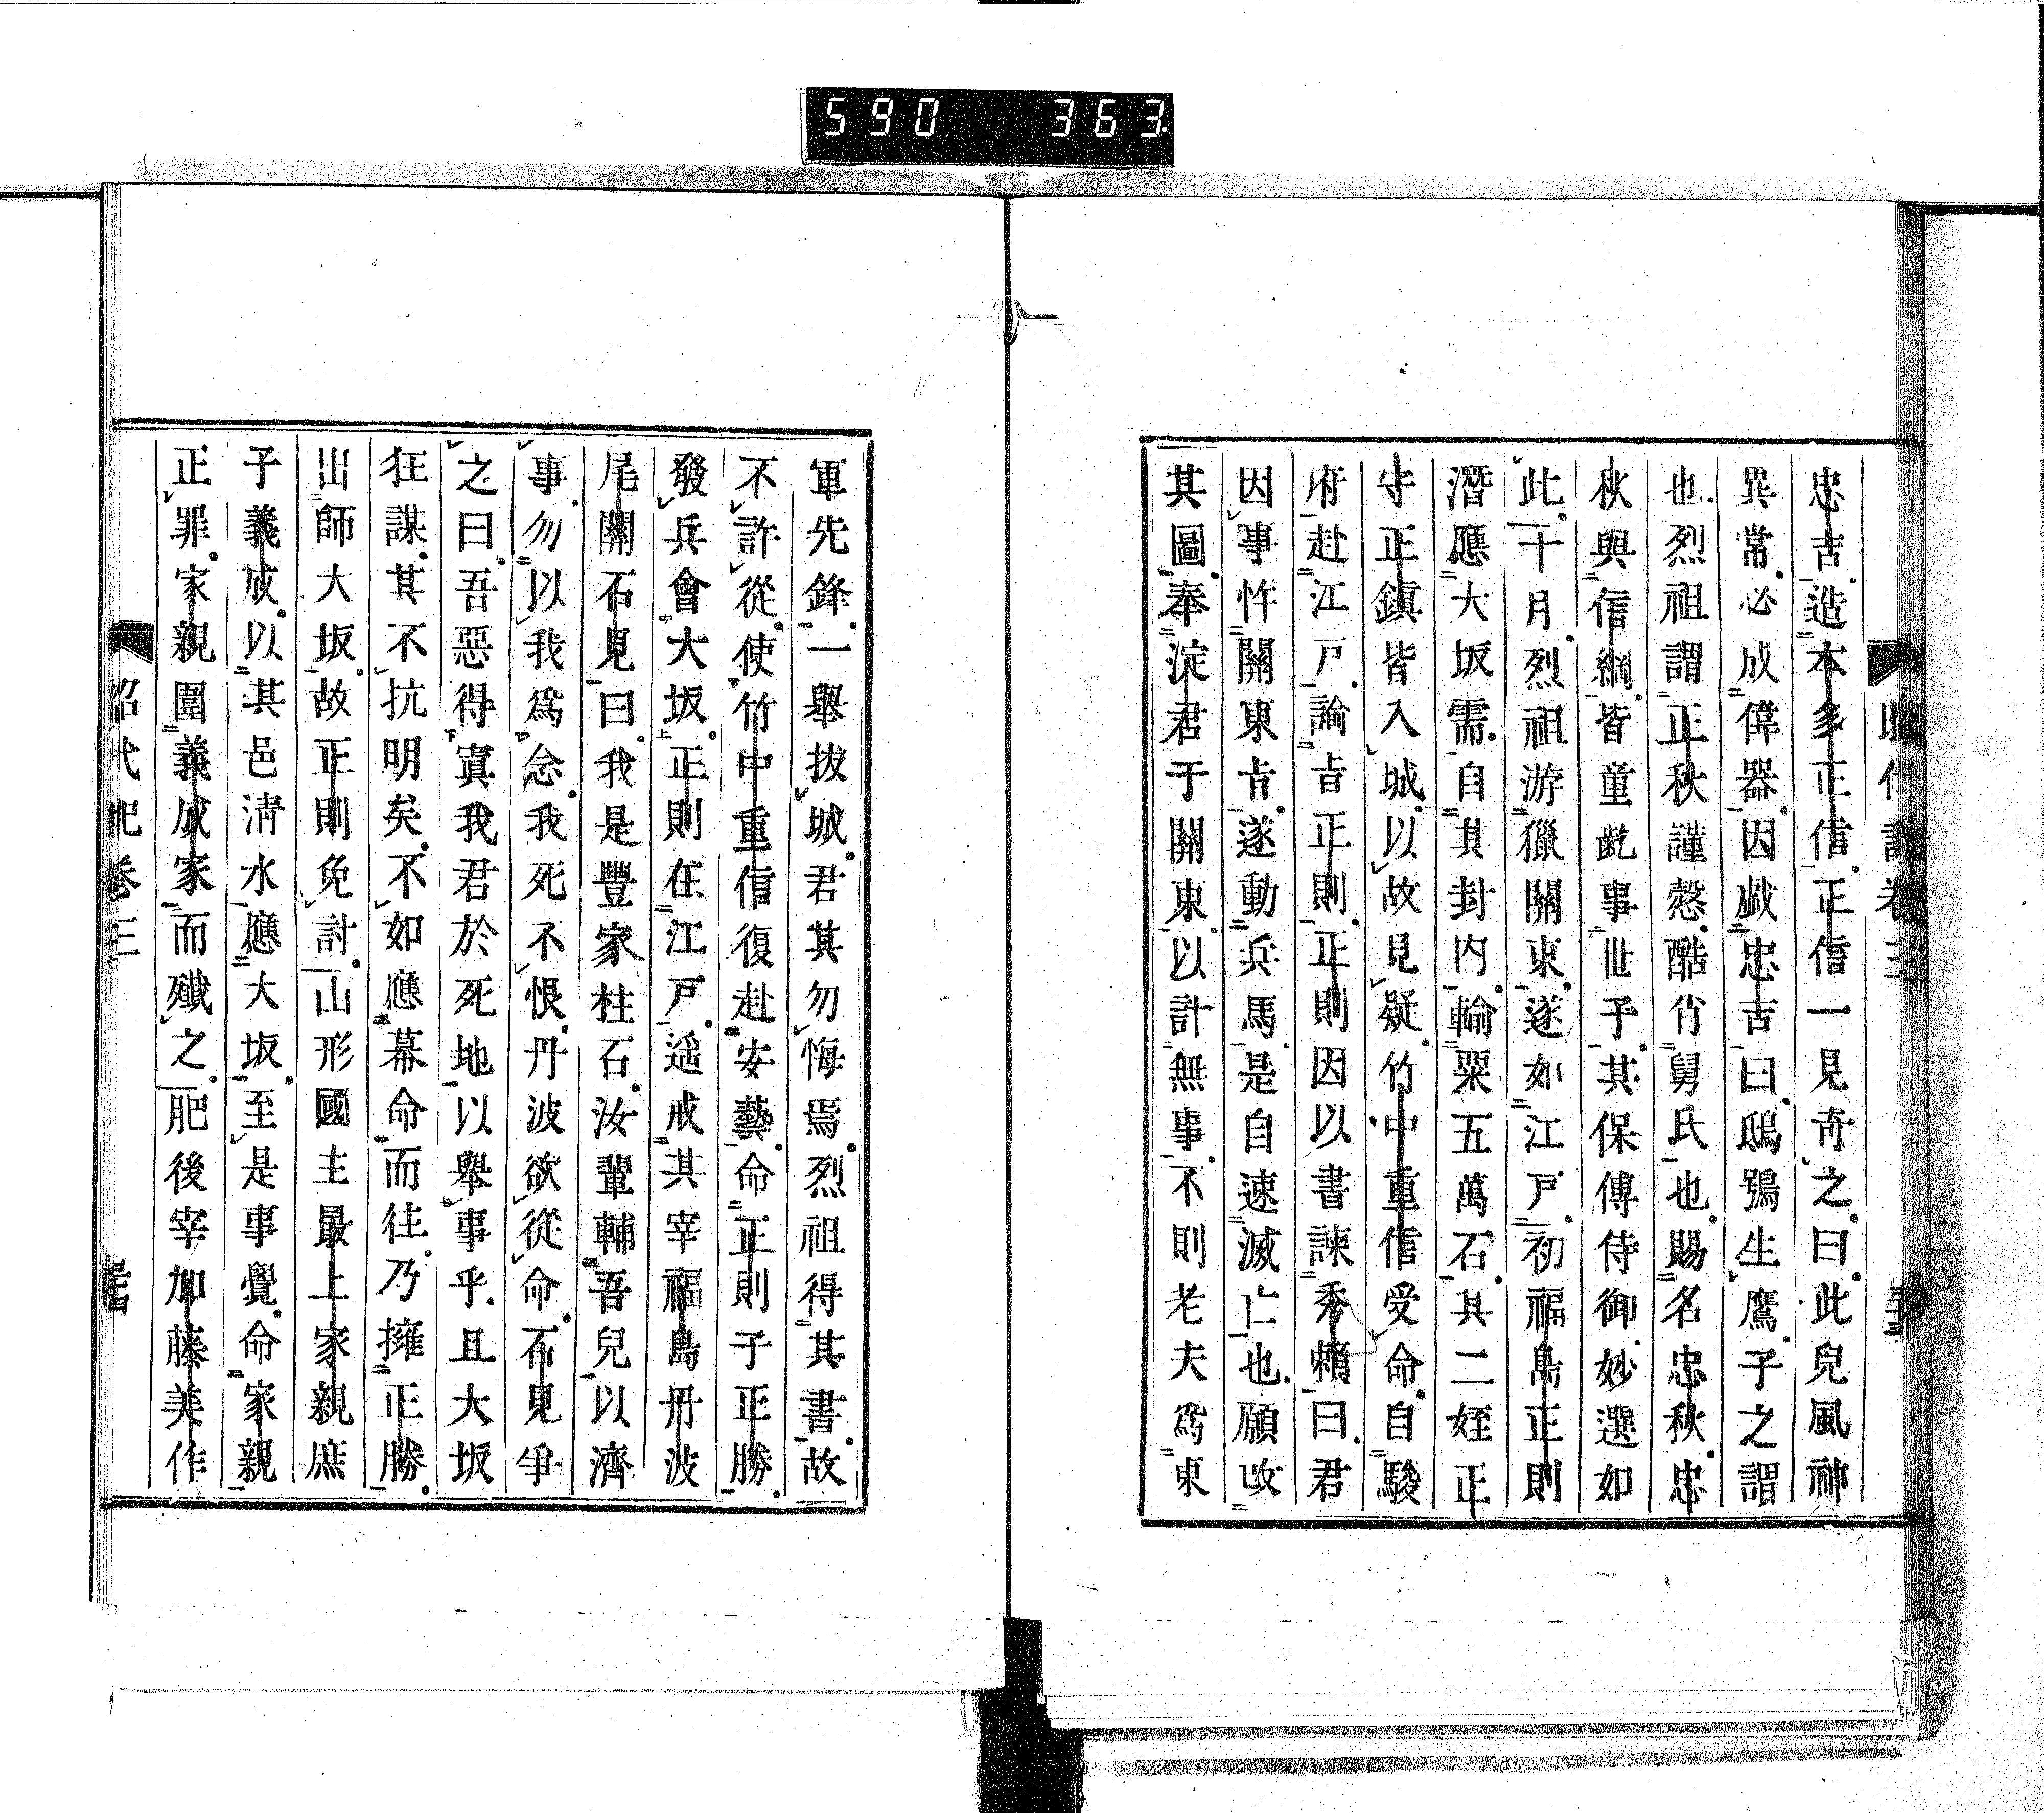 590 363
昭代記卷三
忠吉造本多正信正信一見奇之曰此兒風神
異常必成偉器因戯忠吉曰鴟鴞生鷹子之謂
也烈祖謂正秋謹愨酷肖舅氏也賜名忠秋忠
秋與信綱皆童齔事世子其保傅侍御妙選如
此十月烈祖游獵關東遂如江戸初福島正則
潛應大坂需自其封内輸粟五萬石其二姪正
守正鎮皆入城以故見疑竹中重信受命自駿
府赴江戸諭旨正則正則因以書諫秀賴曰君
因事忤關東旨遂動兵馬是自速滅亡也願改
其圖奉淀君于關東以計無事不則老夫爲東
軍先鋒一舉拔城君其勿悔焉烈祖得其書故
不許從使竹中重信復赴安藝命正則子正勝
發兵會大坂正則在江戸遥戒其宰福島丹波
尾關石見曰我是豐家柱石汝輩輔吾兒以濟
事勿以我爲念我死不恨丹波欲從命石見爭
之曰吾惡得寘我君於死地以舉事乎且大坂
狂謀其不抗明矣不如應幕命而往乃擁正勝
出師大坂故正則免討山形國主最上家親庶
子義成以其邑淸水應大坂至是事覺命家親
正罪家親圍義成家而殲之肥後宰加藤美作
昭代記卷三